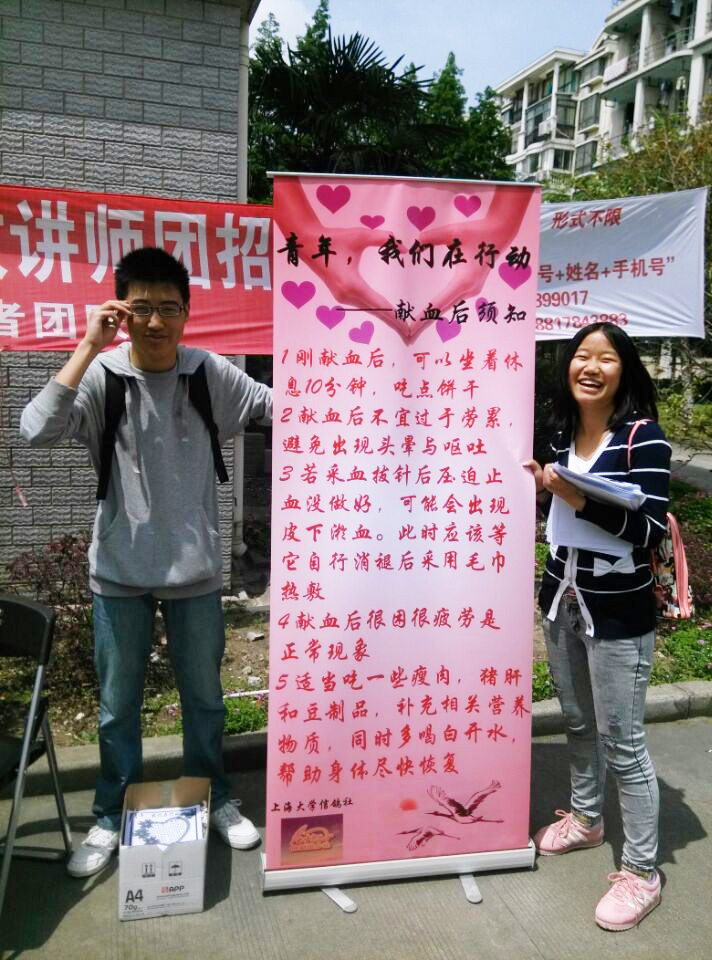 讲师团招
者团
形式不限
号+姓名+手机号”
399017
青年，我们在行动
——献血后须知
1刚献血后，可以坐着休
息10分钟，吃点饼干
2献血后不宜过于劳累，
避免出现头晕与呕吐
3若采血拔针后压迫止
血没做好，可能会出现
皮下淤血。此时应该等
它自行消褪后采用毛巾
热敷
4献血后很困很疲劳是
正常现象
5适当吃一些瘦肉，猪肝
和豆制品，补充相关营养
物质，同时多喝白开水，
帮助身体尽快恢复
上海大学信鸽社
A4
70g
APP